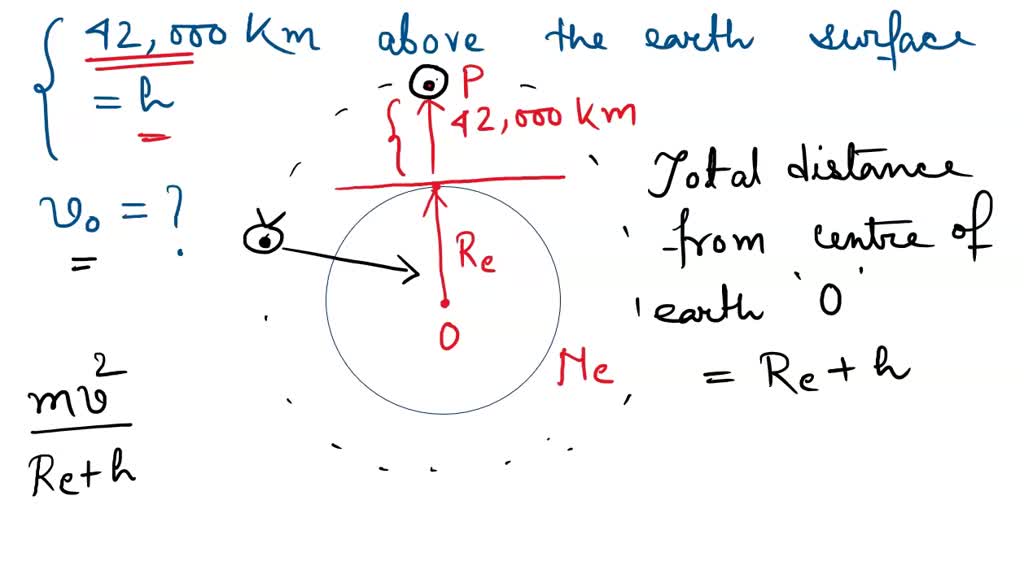 42,000 Km above the earth surface
= h
P
42,000 Km
v₀ = ?
Re
O
Me
Total distance
from centre of
earth 'O'
= Re + h
mv²
Re+h